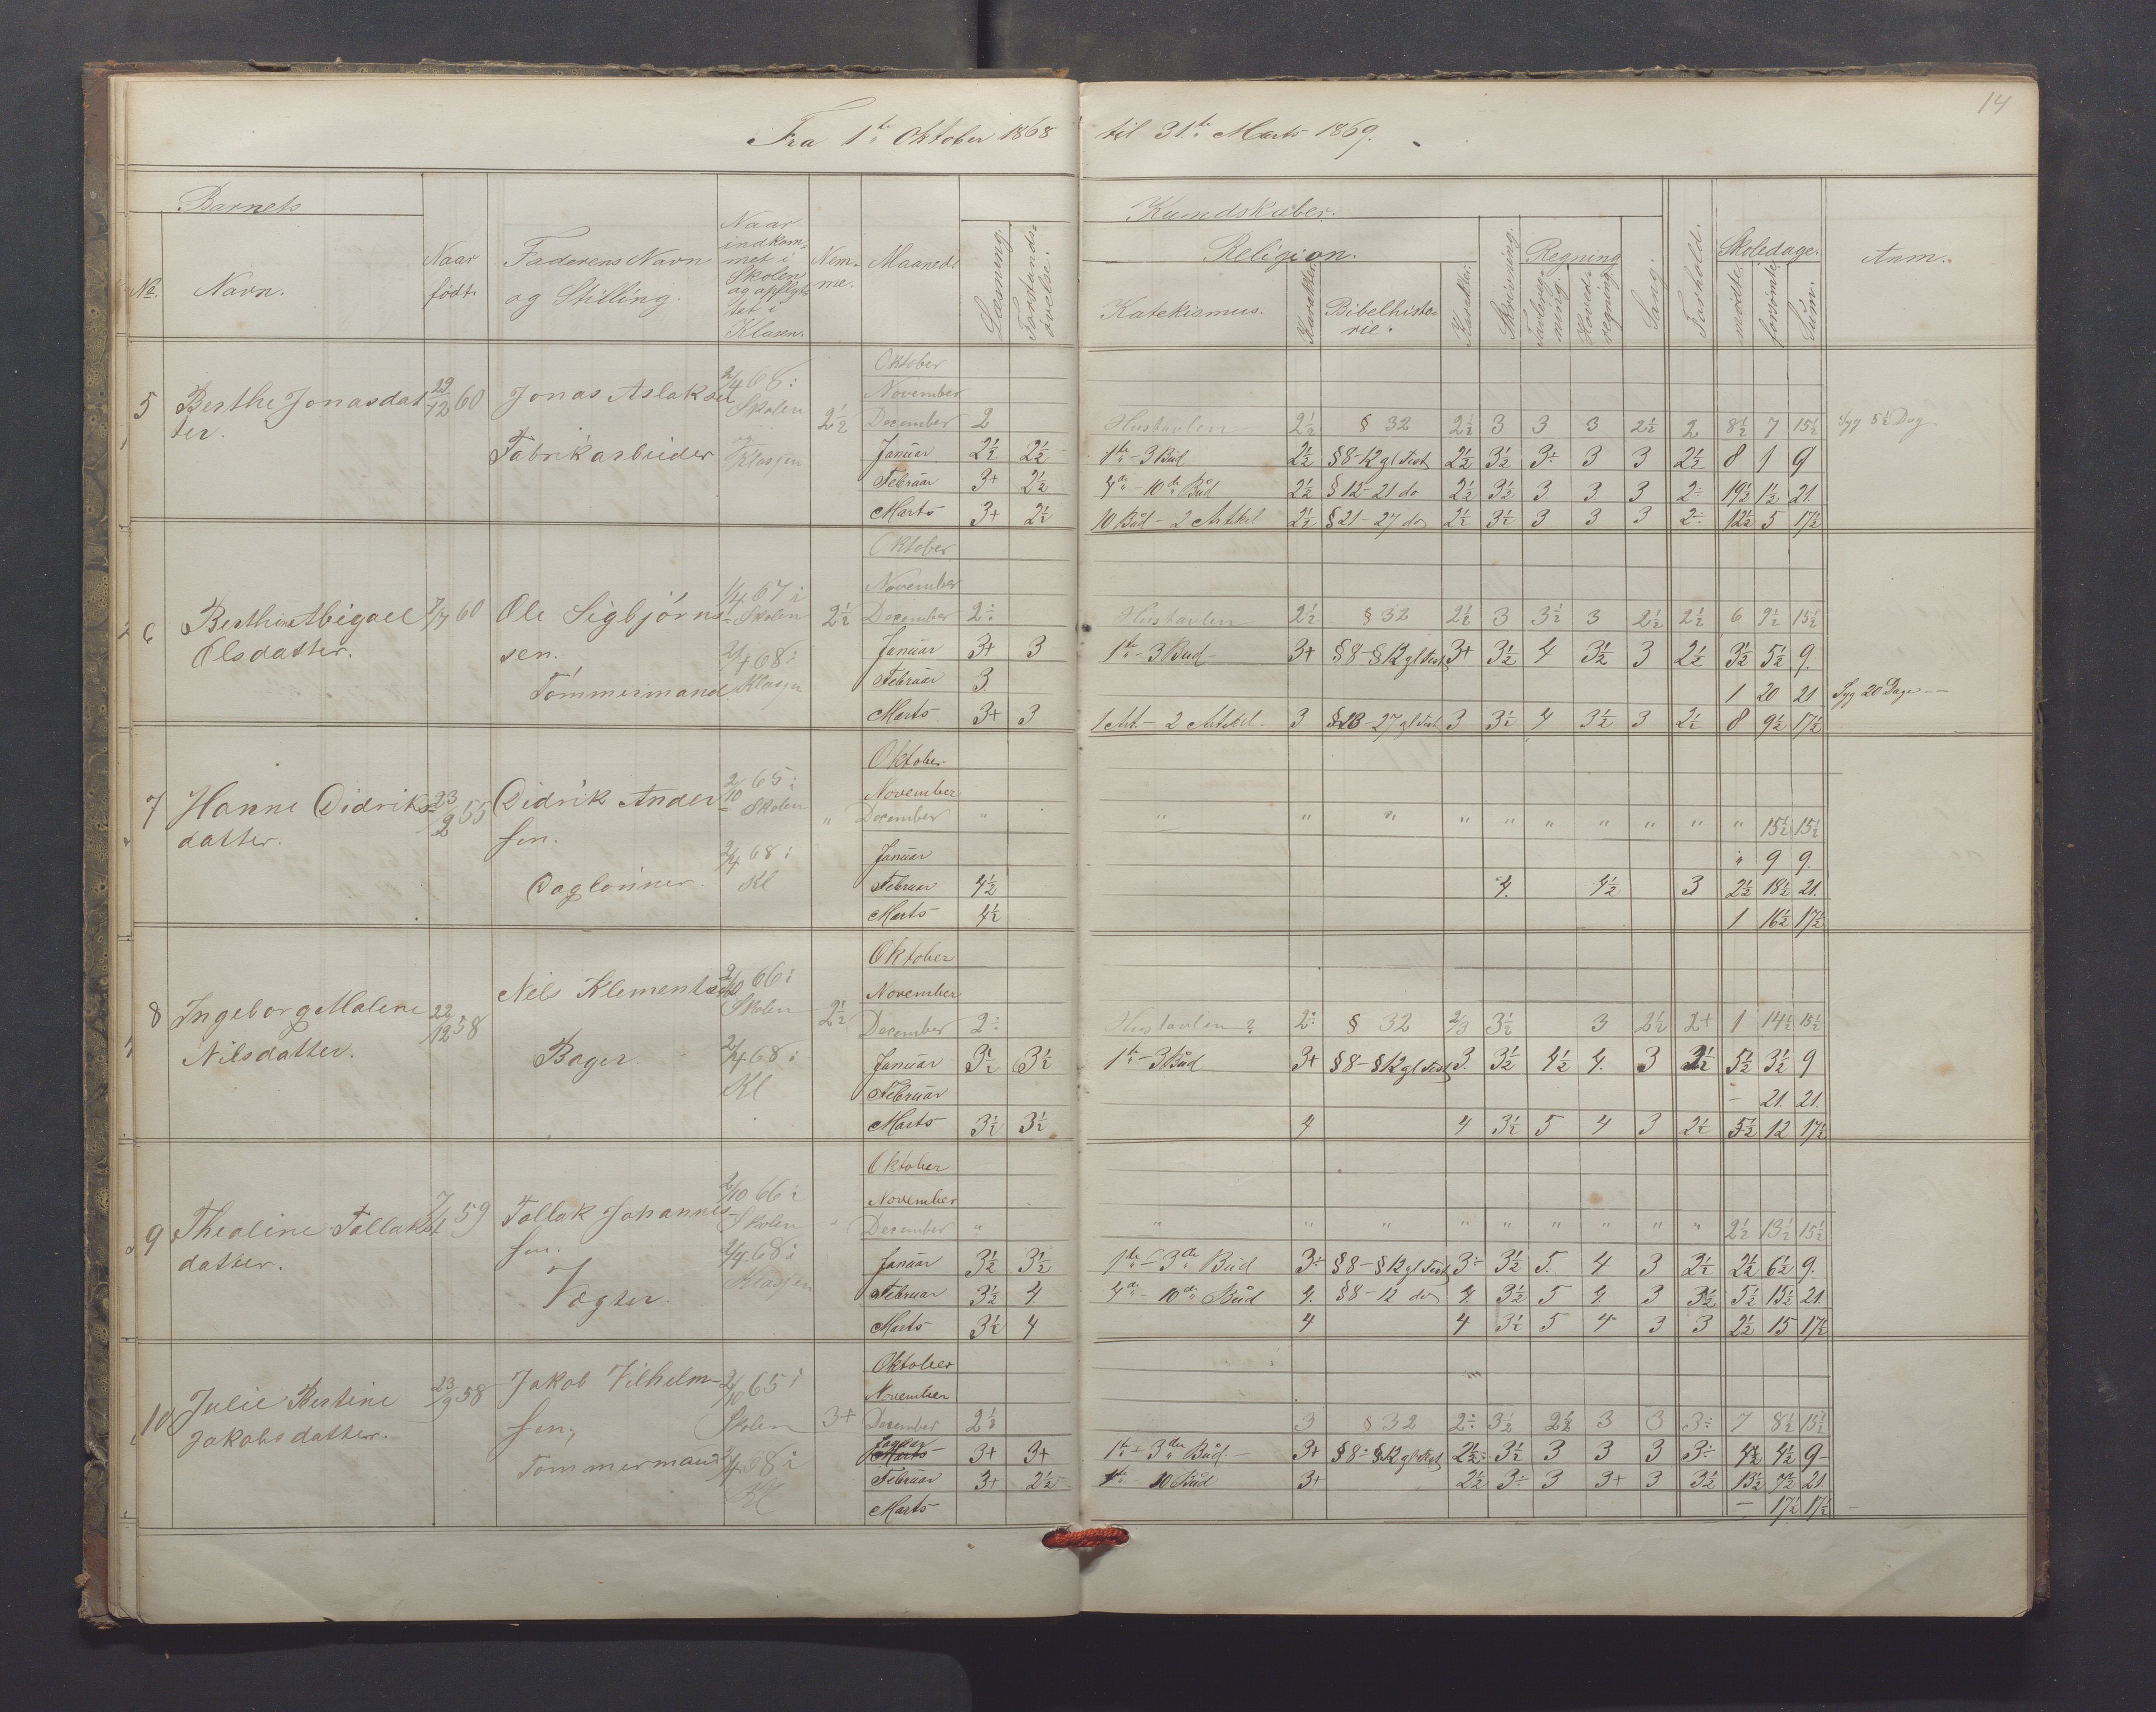 14
Fra 1ste Oktober 1868 til 31te Marts 1869.
Barnets Kundskaber.
No. Navn. Naar født. Faderens Navn og Stilling. Naar indkommet i Skolen og opflyttet i Klassen. Nemme. Maaned. Læsning. Forstandsøvelse. Religion. Katekismus. Karakter. Bibelhistorie. Karakter. Skrivning. Regning Tavleregning. Hovedregning. Sang. Forhold. Skoledage. mødte. forsømte. Sum. Anm.
5 Berthe Jonasdatter. 29/12 60 Jonas Aslaksen Fabrikarbeider 2/4 68 i Skolen og Klassen 2½
Oktober
November
December 2 Hustavlen 2½ § 32 2½ 3 3 3 2½ 2 8½ 7 15½ Syg 5½ Dag
Januar 2½ 2½ 1ste - 3 Bud 2½ §8-12 gl Test 2½ 3½ 3÷ 3 3 2½ 8 1 9
Februar 3+ 2½ 4de - 10de Bud 2½ §12-21 do 2½ 3½ 3 3 3 2÷ 19½ 1½ 21.
Marts 3+ 2½ 10 Bud - 2 Artikel 2½ §21-27 do 2½ 3½ 3 3 3 2÷ 12½ 5 17½
6 Berthe Abigael Olsdatter. 7/7 60 Ole Sigbjørnsen. Tømmermand 1/4 67 i Skolen 2/4 68 i Klassen 2½
Oktober
November
December 2÷ Hustavlen 2½ § 32 2½ 3 3½ 3 2½ 2½ 6 9½ 15½
Januar 3+ 3 1ste - 3 Bud 3+ §8-§12 gl Test 3+ 3½ 4 3½ 3 2½ 3½ 5½ 9.
Februar 3. 1 20 21 Syg 20 Dage
Marts 3+ 3 1 Art. - 2 Artikel. 3 §13-27 gl Test 3 3½ 4 3½ 3 2½ 8 9½ 17½
7 Hanne Didriksdatter. 23/2 55 Didrik Andersen. Daglønner. 2/10 65 i Skolen 2/4 68 i Kl "
Oktober
November
December " " " " " " " " " " " 15½ 15½
Januar " 9 9.
Februar 4½ 4. 4½ 3 2½ 18½ 21.
Marts 4½ 1 16½ 17½
8 Ingeborg Malene Nilsdatter. 22/12 58 Nels Klementsen Bager. 2/10 66 i Skolen 2/4 68 i Kl 2½
Oktober
November
December 2÷ Hustavlen? 2÷ § 32 2/3 3½ 3 2½ 2+ 1 14½ 15½
Januar 3½ 3½ 1ste - 3 Bud 3+ §8-§12 gl Test 3. 3½ 4½ 4. 3 2½ 5½ 3½ 9
Februar - 21. 21.
Marts 3½ 3½ 4 4 3½ 5 4 3 2½ 5½ 12 17½
9 Thealine Tollaksdatter. 59 Tollak Johannessen. Vægter. 2/10 66 i Skolen 2/4 68 i Klassen "
Oktober
November
December " " " " " " " " " " 2½ 13½ 15½
Januar 3½ 3½ 1ste - 3de Bud 3÷ §8-§12 gl Test 3÷ 3½ 5. 4 3 2½ 2½ 6½ 9.
Februar 3½ 4. 4de - 10de Bud 4. §8-12 do 4. 3½ 5 4 3 3½ 5½ 15½ 21
Marts 3½ 4 4 4 3½ 5 4 3 3 2½ 15 17½
10 Julie Bertine Jakobsdatter. 23/9 58 Jakob Vilhelmsen, Tømmermand 2/10 65 i Skolen 2/4 68 i Kl 3+
Oktober
November
December 2½ 3 § 32 2÷ 3½ 2½ 3 3 3÷ 7 8½ 15½
Januar 3+ 3+ 1ste - 3die Bud. 3+ §8-§12 gl Test 2½ 3½ 3 3 3 3÷ 4½ 4½ 9
Februar 3+ 2½ 1ste - 10 Bud 3+ 2½ 3÷ 3 3+ 3 3½ 13½ 7½ 21
Marts - 17½ 17½